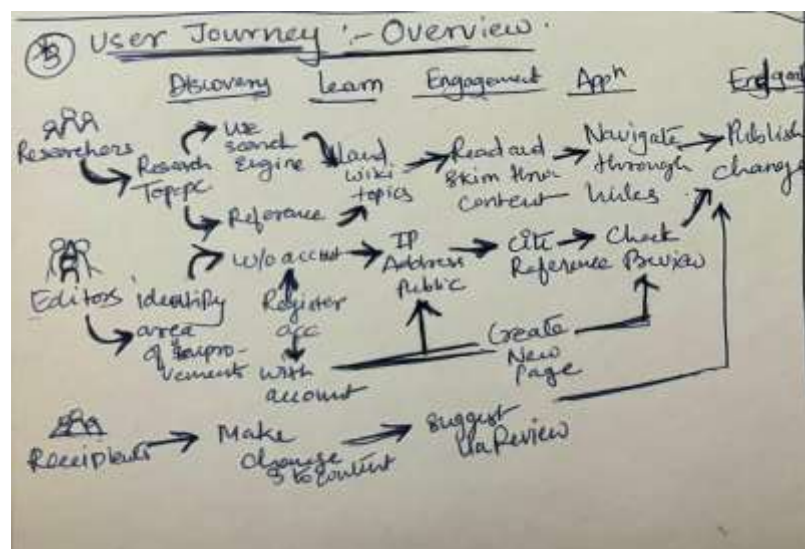 B User Journey :- Overview.
Discovery Learn Engagement Appn Endgoal
Researchers
Research
Topic
Use
search
Engine
Reference
Land
wiki
topics
Read and
Skim thro
content
Navigate
through
links
Publish
changes
Editors
identify
area
of improvements
w/o account
Register
acc
with
account
IP
Address
Public
Cite
Reference
Check
Preview
Create
New
Page
Recipients
Make
change
to content
Suggest
via Review